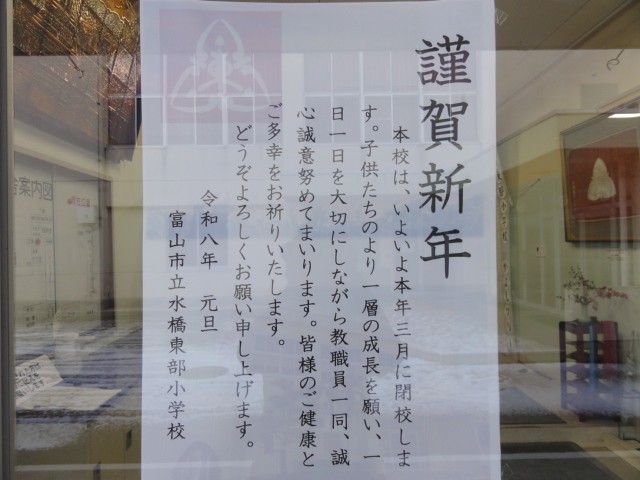 謹賀新年
本校は、いよいよ本年三月に閉校しま
す。子供たちのより一層の成長を願い、一
日一日を大切にしながら教職員一同、誠
心誠意努めてまいります。皆様のご健康と
ご多幸をお祈りいたします。
どうぞよろしくお願い申し上げます。
令和八年 元旦
富山市立水橋東部小学校
案内図